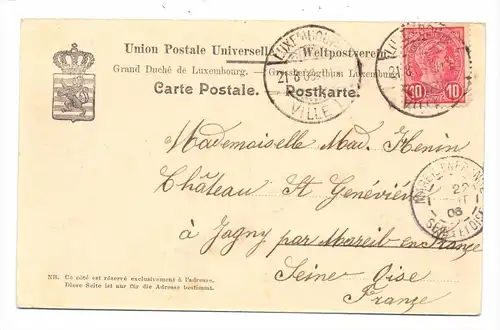 Union Postale Universelle. — Weltpostverein.
Grand Duché de Luxembourg. — Grossherzogthum Luxemburg
Carte Postale. Postkarte.
LUXEMBOURG
21 6 06
VILLE
10 10
Mademoiselle Mad. Henin
Château St Geneviève
à Jagny par Mareil-en-France
Seine Oise
France
22
06
SEINE ET OISE
NB. Ce côté est réservé exclusivement à l'adresse.
Diese Seite ist nur für die Adresse bestimmt.